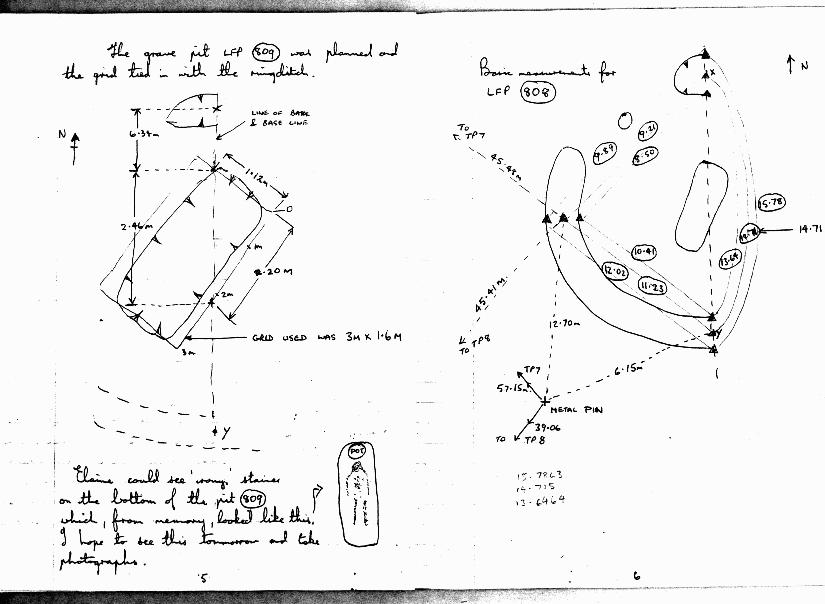 The grave pit LFP 809 was planned and
the grid tied in with the ringditch.
LINE OF BASE
& BASE LINE
6.34m
N
1.12m
2.46m
0
x 1m
2.20 M
x 2m
GRID USED WAS 3M X 1.6M
3m
Y
Elaine could see 'wavy' stains
on the bottom of the pit 809
which, from memory, looked like this.
I hope to see this tommorrow and take
photographs.
POT
5
Basic measurements for
LFP 808
N
x
TO
TP7
45.48m
9.21
9.89
8.50
15.78
14.71
13.64
10.41
12.02
11.23
45.41 M
TO TP8
12.70m
y
6.15m
TP7
57.15m
METAL PIN
39.06
TO TP8
15.7863
14.715
13.6464
6